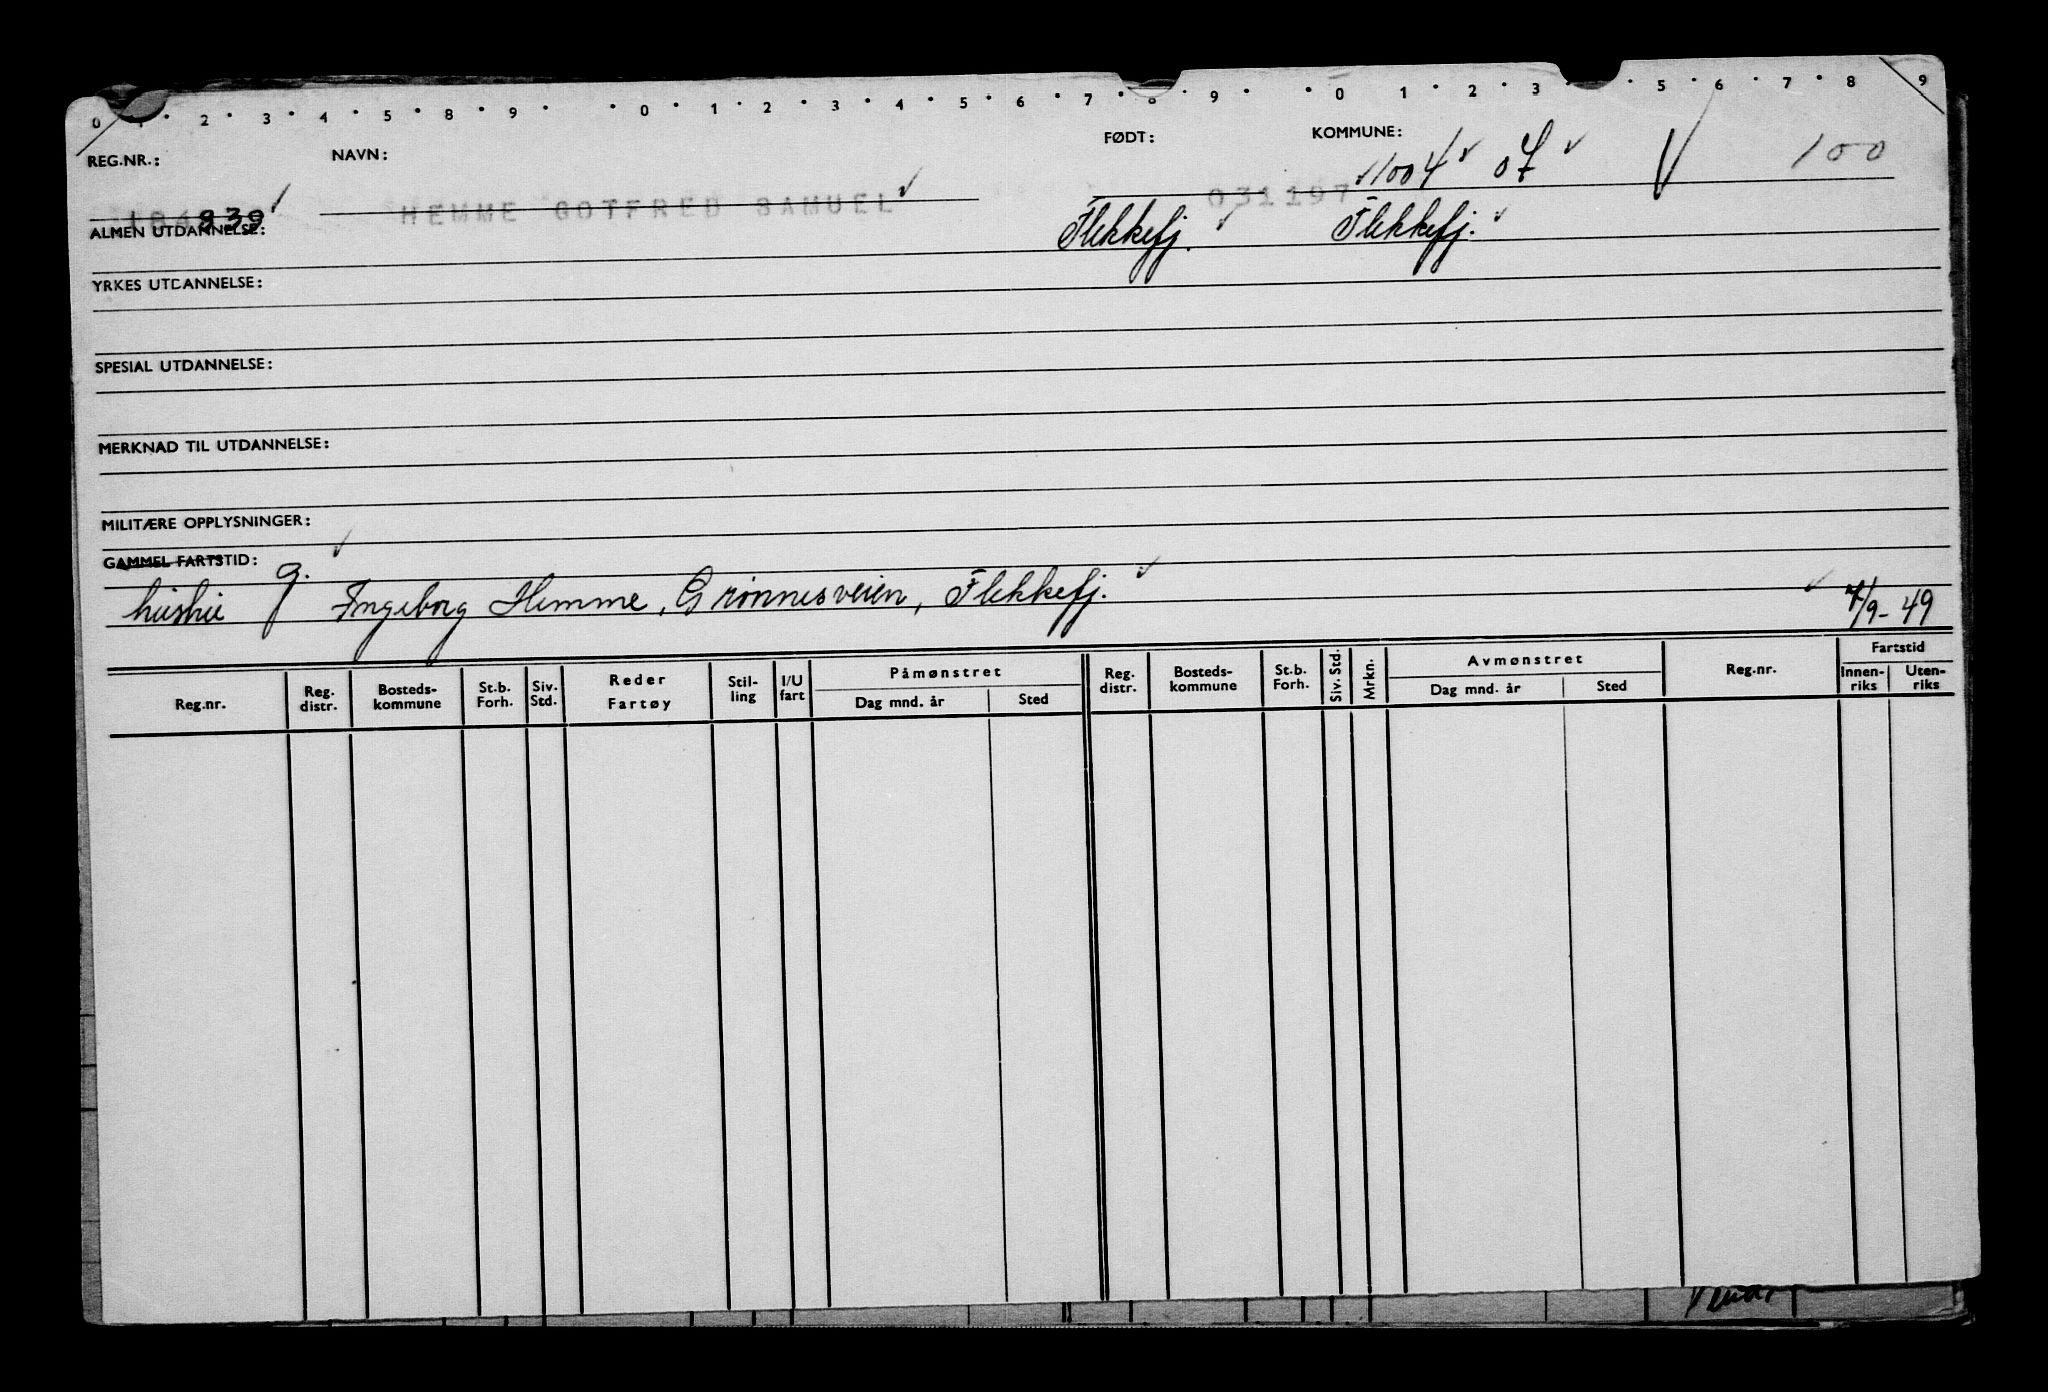 0 1 2 3 4 5 8 9 0 1 2 3 4 5 6 7 8 9 0 1 2 3 5 6 7 8 9
REG.NR.: NAVN: FØDT: KOMMUNE:
1004 07 100
939 HEMME GOTFRED SAMUEL 031197
ALMEN UTDANNELSE: Flekkefj. Flekkefj.
YRKES UTDANNELSE:
SPESIAL UTDANNELSE:
MERKNAD TIL UTDANNELSE:
MILITÆRE OPPLYSNINGER:
GAMMEL FARTSTID:
hustru g. Ingeborg Hemme, Grønnesveien, Flekkefj. 7/9-49
Reg.nr. Reg. distr. Bosteds-kommune St.b. Forh. Siv. Std. Reder Fartøy Stil-ling I/U fart Påmønstret Dag mnd. år Sted Reg. distr. Bosteds-kommune St.b. Forh. Siv. Std. Mrkn. Avmønstret Dag mnd. år Sted Reg.nr. Fartstid Innen-riks Uten-riks